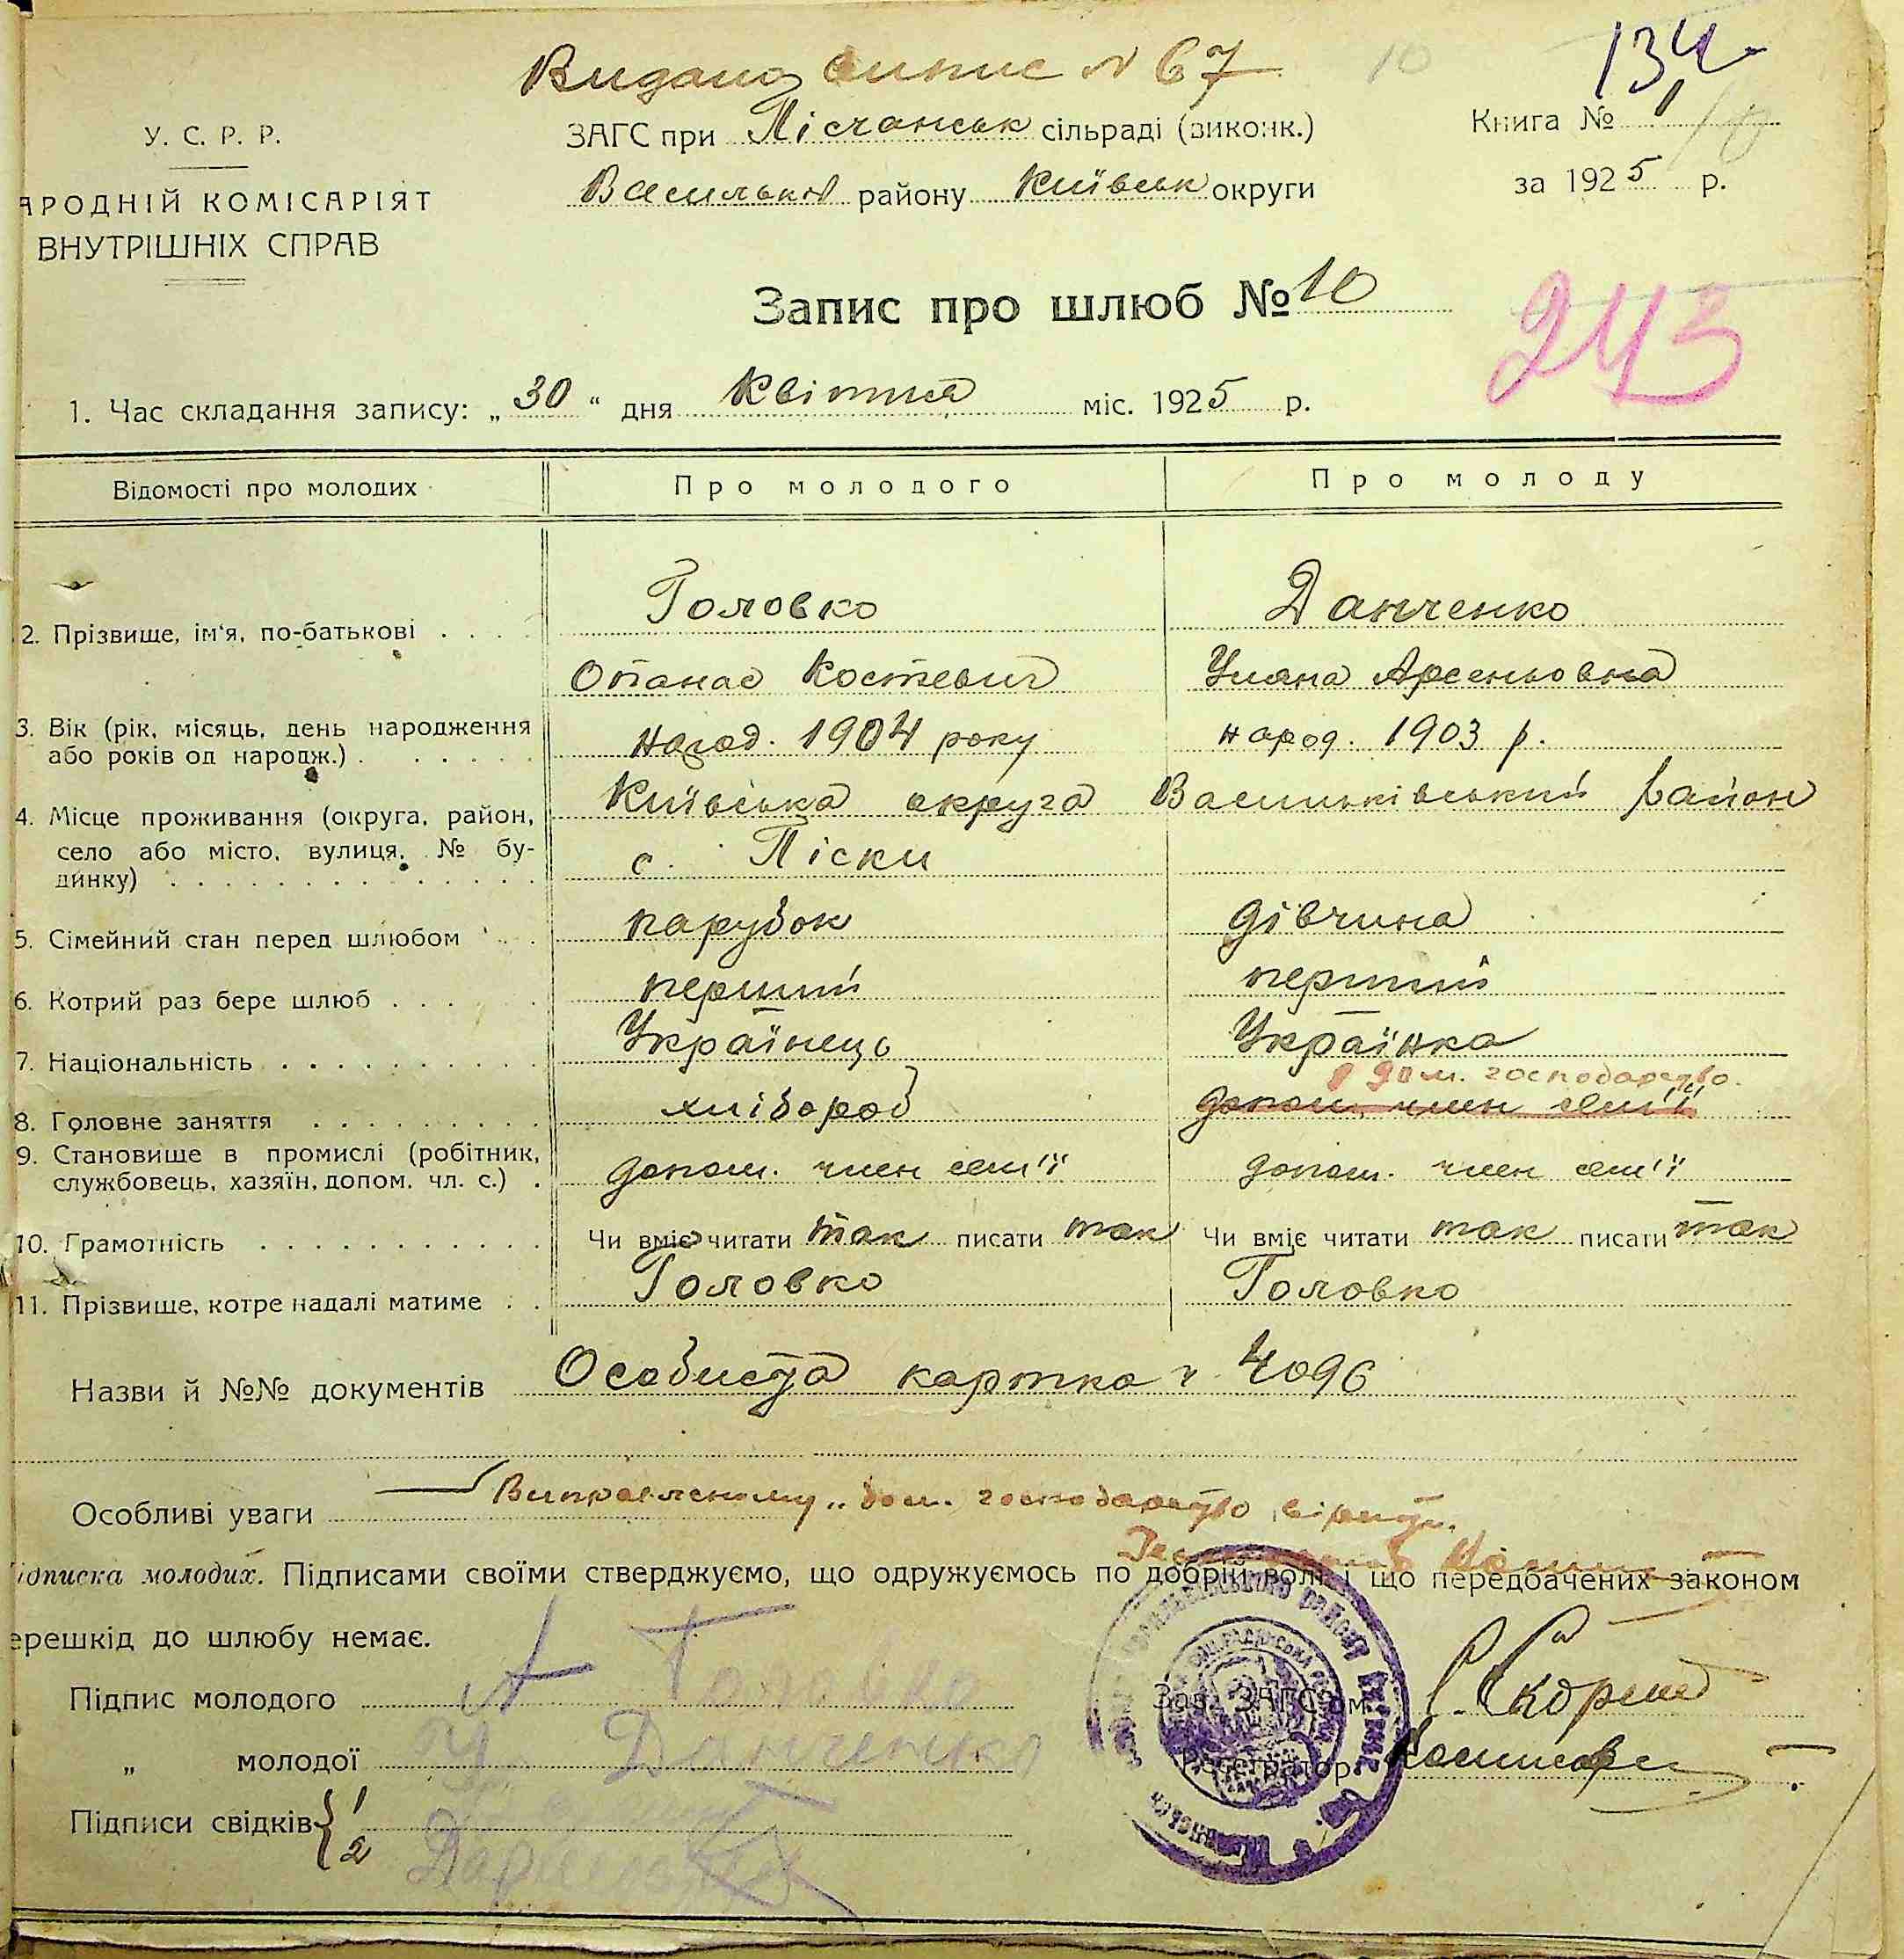 Видано випис № 67
10
134
У. С. Р. Р.
ЗАГС при Пісчанськ сільраді (виконк.)
Книга № 1
Васильків району Київськ округи
за 1925 р.
АРОДНІЙ КОМІСАРІЯТ
ВНУТРІШНІХ СПРАВ
Запис про шлюб № 10
243
1. Час складання запису: „30“ дня Квітня міс. 1925 р.
Відомості про молодих Про молодого Про молоду
Головко Данченко
2. Прізвище, ім'я, по-батькові
Опанас Костевич Уляна Арсеньовна
3. Вік (рік, місяць, день народження
або років од народж.)
народ. 1904 року народ. 1903 р.
Київська округа Васильківський район
4. Місце проживання (округа, район,
село або місто, вулиця, № бу-
динку)
с. Піски
5. Сімейний стан перед шлюбом парубок дівчина
6. Котрий раз бере шлюб перший перший
7. Національність Українець Українка
дом. господарство.
8. Головне заняття хлібороб допом. член сем'ї
9. Становище в промислі (робітник,
службовець, хазяїн, допом. чл. с.)
допом. член сем'ї допом. член сем'ї
10. Грамотність Чи вміє читати так писати так Чи вміє читати так писати так
11. Прізвище, котре надалі матиме Головко Головко
Назви й №№ документів Особиста картка ч. 4096
Особливі уваги Виправленому „дом. господарство вірити.
ідписка молодих. Підписами своїми стверджуємо, що одружуємось по добрій волі і що передбачених законом
ерешкід до шлюбу немає.
Підпис молодого А Головко
Зав. ЗАГС'ом С. Скорий
„ молодої У. Данченко
Реєстратор
Підписи свідків { 1
2